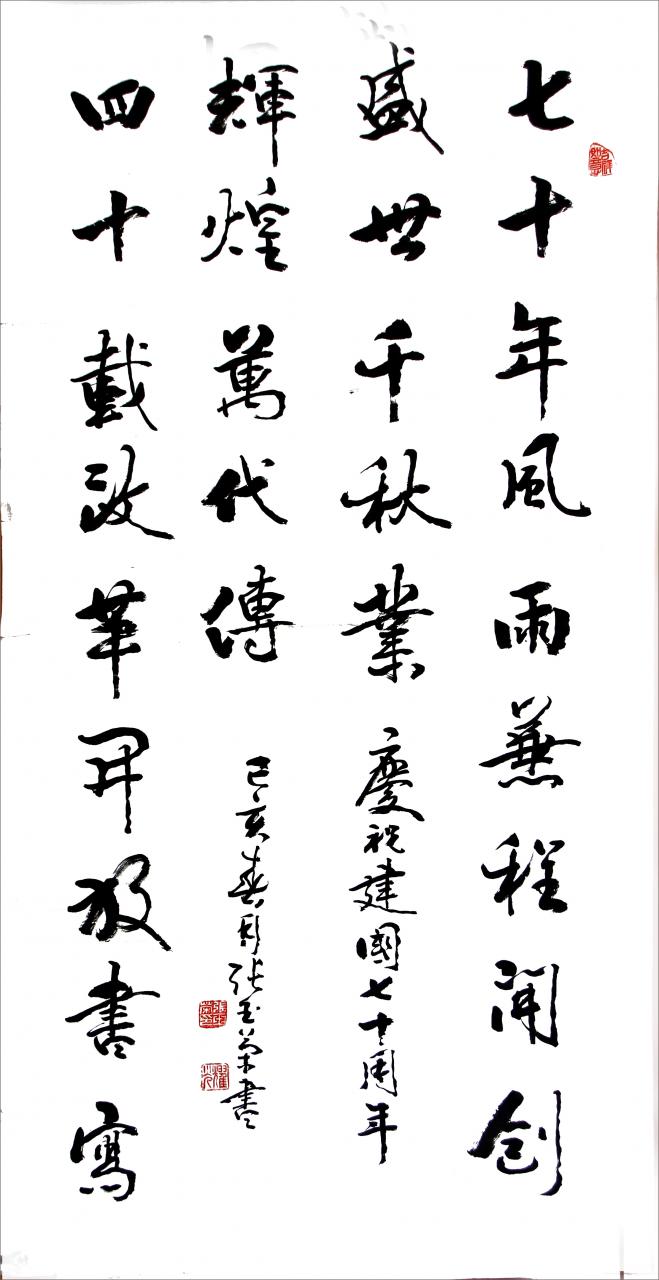 七十年風雨兼程開創
盛世千秋業
四十載改革開放書寫
輝煌萬代傳
慶祝建國七十周年
己亥春月張玉榮書